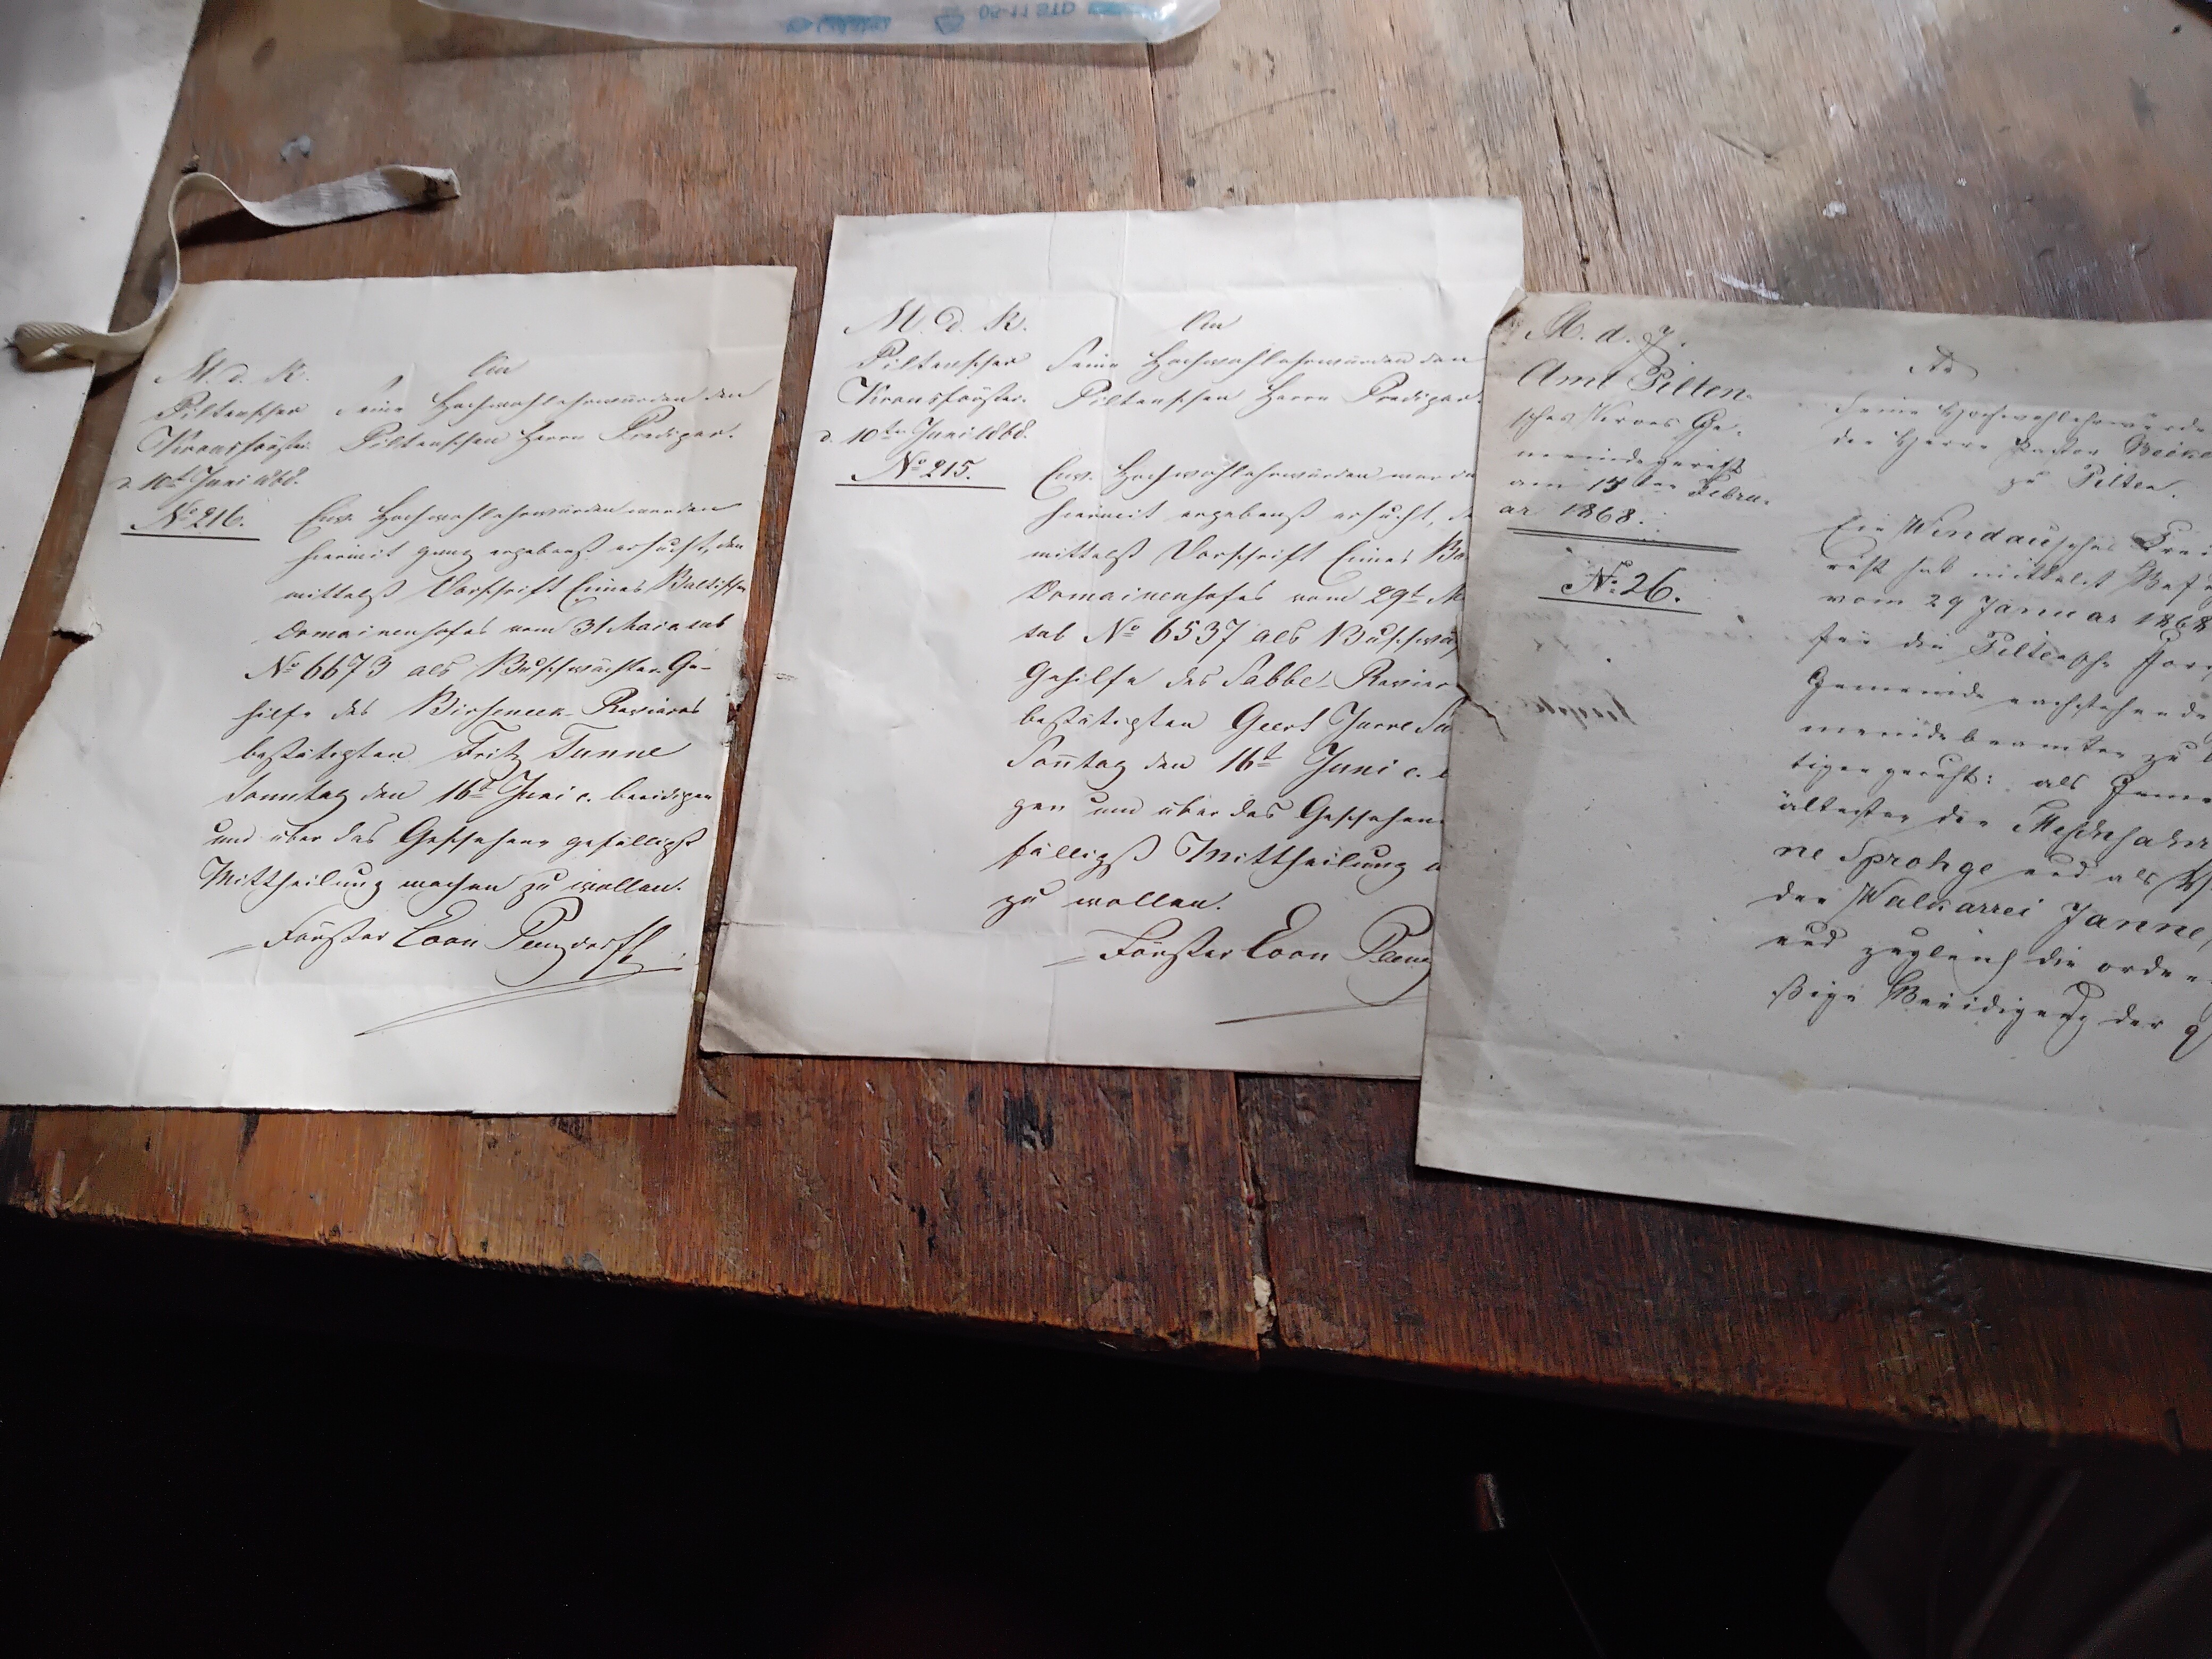 M. d. R.
Piltenscher
Kronsförster.
d. 10t Juni 1868.
No 216.
An
Seine Hochwohlehrwürden den
Piltenschen Herrn Prediger.
Euer Hochwohlehrwürden werden
hiermit ganz ergebenst ersucht, den
mittelst Vorschrift Eines Baltischen
Domainenhofes vom 31 Mai a. sub
No 6673 als Buschwächter-Ge-
hilfe des Birseneek-Revieres
bestätigten Fritz Tunne
Sonntag den 16t Juni c. beeidigen
und über das Geschehene gefälligst
Mittheilung machen zu wollen.
Förster
M. d. R.
Piltenscher
Kronsförster.
d. 10ten Juni 1868.
No 215.
An
Seine Hochwohlehrwürden den
Piltenschen Herrn Prediger.
Euer Hochwohlehrwürden werde
hiermit ergebenst ersucht, de
mittelst Vorschrift Eines Ba
Domainenhofes vom 29t M
sub No 6537 als Buschwä
Gehilfe des Sabbe-Revier
bestätigten Geert Jurre
Sonntag den 16t Juni c.
gen und über das Geschehen
fälligst Mittheilung
zu wollen.
Förster
M. d. J.
Amt Pilten-
sches Krons Ge-
meindegericht
am 15ten Febru-
ar 1868.
No 26.
An
Seine Hochwohlehrwürde
den Herrn Pastor
zu Pilten.
Ein Windausches Krei
richt hat mittelst Befe
vom 29 Januar 1868
für die Piltensche Fors
Gemeinde nachstehende
meindebeamten zu b
tigen geruht: als Geme
ältester den
ne Sprohge und als
den Walkarrei Janne
und zugleich die ordnu
ßige Beeidigung der g